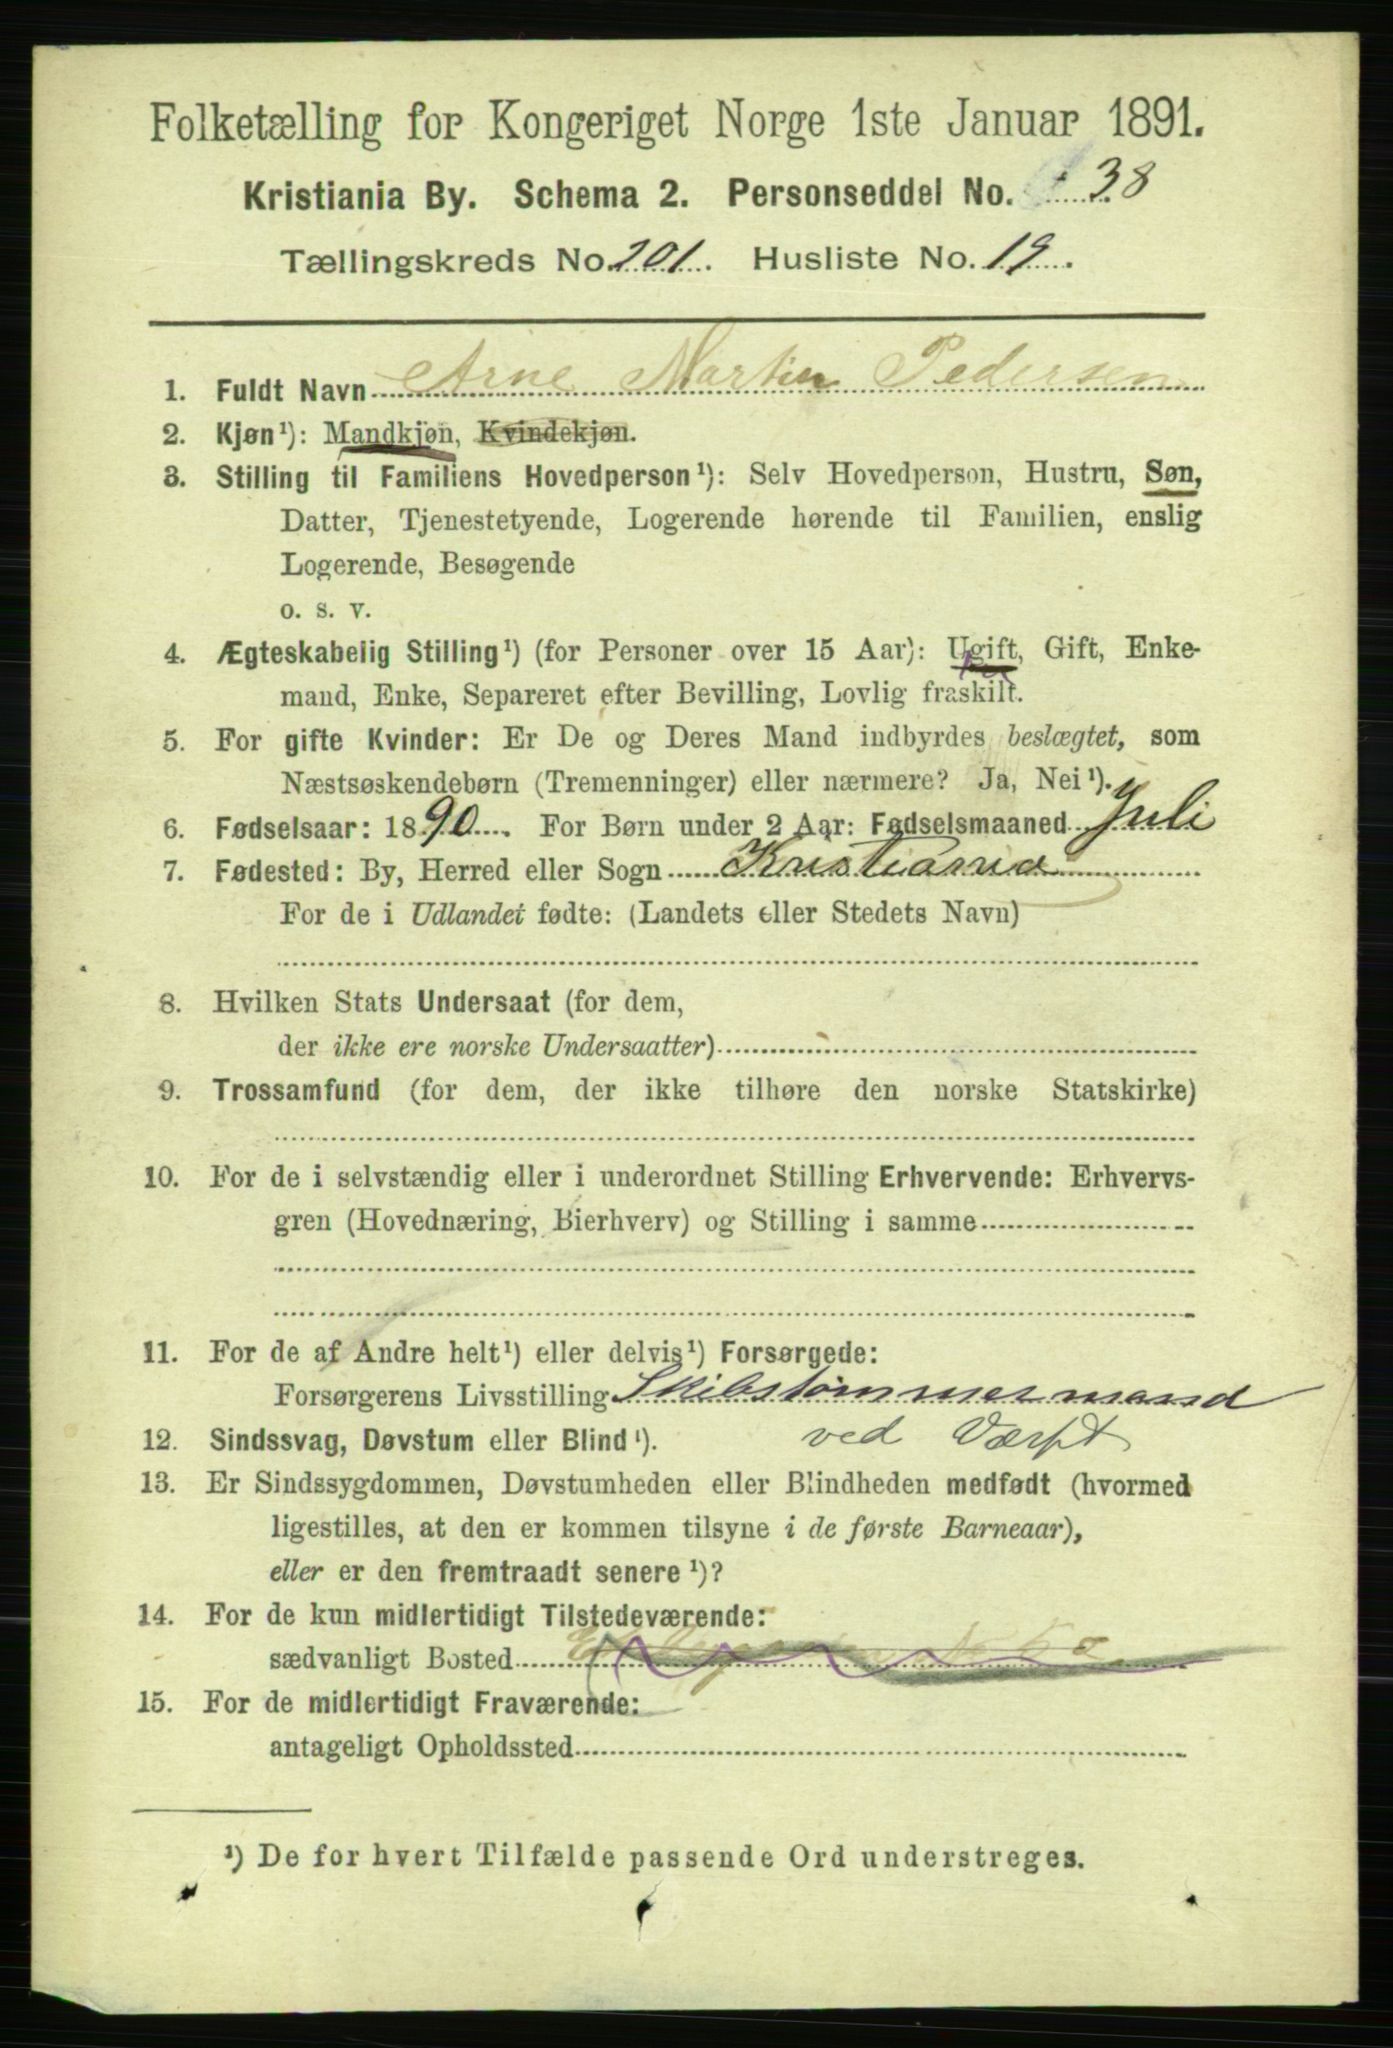 Folketælling for Kongeriget Norge 1ste Januar 1891.
Kristiania By. Schema 2. Personseddel No. 38
Tællingskreds No. 201. Husliste No. 19.
1. Fuldt Navn Arne Martin Pedersen
2. Kjøn¹): Mandkjøn, Kvindekjøn.
3. Stilling til Familiens Hovedperson¹): Selv Hovedperson, Hustru, Søn,
Datter, Tjenestetyende, Logerende hørende til Familien, enslig
Logerende, Besøgende
o. s. v.
4. Ægteskabelig Stilling¹) (for Personer over 15 Aar): Ugift, Gift, Enke-
mand, Enke, Separeret efter Bevilling, Lovlig fraskilt.
5. For gifte Kvinder: Er De og Deres Mand indbyrdes beslægtet, som
Næstsøskendebørn (Tremenninger) eller nærmere? Ja, Nei¹).
6. Fødselsaar: 1890. For Børn under 2 Aar: Fødselsmaaned Juli
7. Fødested: By, Herred eller Sogn Kristiania
For de i Udlandet fødte: (Landets eller Stedets Navn)
8. Hvilken Stats Undersaat (for dem,
der ikke ere norske Undersaatter)
9. Trossamfund (for dem, der ikke tilhøre den norske Statskirke)
10. For de i selvstændig eller i underordnet Stilling Erhvervende: Erhvervs-
gren (Hovednæring, Bierhverv) og Stilling i samme
11. For de af Andre helt¹) eller delvis¹) Forsørgede:
Forsørgerens Livsstilling Skibstømmermand
12. Sindssvag, Døvstum eller Blind¹). ved Værft
13. Er Sindssygdommen, Døvstumheden eller Blindheden medfødt (hvormed
ligestilles, at den er kommen tilsyne i de første Barneaar),
eller er den fremtraadt senere¹)?
14. For de kun midlertidigt Tilstedeværende:
sædvanligt Bosted
15. For de midlertidigt Fraværende:
antageligt Opholdssted
¹) De for hvert Tilfælde passende Ord understreges.